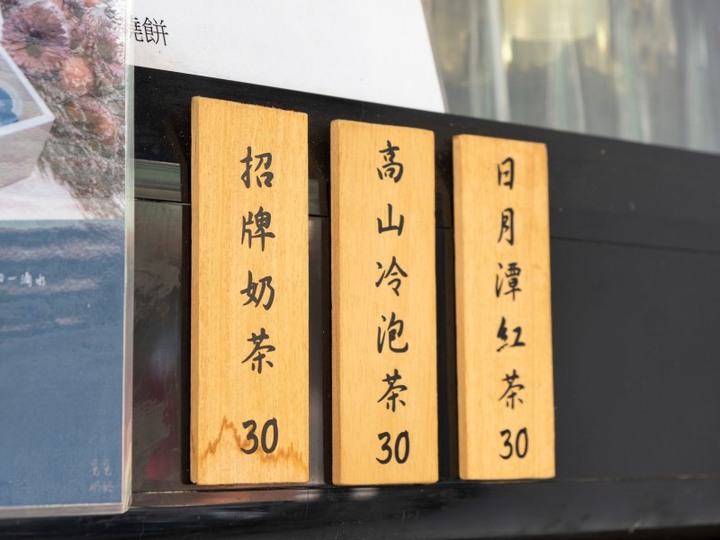 燒餅
招牌奶茶 30
高山冷泡茶 30
日月潭紅茶 30